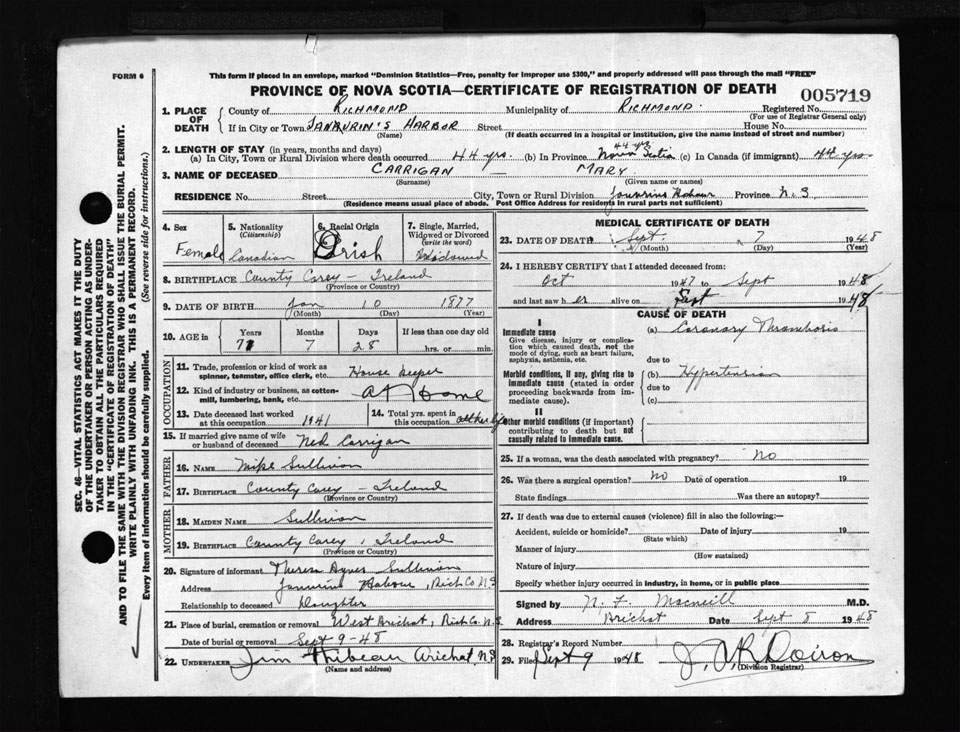 FORM 6
This form if placed in an envelope, marked "Dominion Statistics—Free, penalty for improper use $300," and properly addressed will pass through the mail "FREE"
PROVINCE OF NOVA SCOTIA—CERTIFICATE OF REGISTRATION OF DEATH 005719
1. PLACE OF DEATH
County of RICHMOND Municipality of RICHMOND. Registered No.
(For use of Registrar General only)
If in City or Town JANVURIN'S HARBOR Street House No.
(Name) (If death occurred in a hospital or institution, give the name instead of street and number)
2. LENGTH OF STAY (in years, months and days)
(a) In City, Town or Rural Division where death occurred 44 yrs. (b) In Province 44 yrs Nova Scotia (c) In Canada (if immigrant) 44 yrs.
3. NAME OF DECEASED CARRIGAN — MARY
(Surname) (Given name or names)
RESIDENCE No. Street City, Town or Rural Division Harbour Province N.S
(Residence means usual place of abode. Post Office Address for residents in rural parts not sufficient)
4. Sex Female
5. Nationality (Citizenship) Canadian
6. Racial Origin Irish
7. Single, Married, Widowed or Divorced (write the word) Widowed
8. BIRTHPLACE County Carey — Ireland
(Province or Country)
9. DATE OF BIRTH Jan 10 1877
(Month) (Day) (Year)
10. AGE in Years Months Days If less than one day old
71 7 28 hrs. or min.
OCCUPATION
11. Trade, profession or kind of work as spinner, teamster, office clerk, etc. House keeper
12. Kind of industry or business, as cotton-mill, lumbering, bank, etc. At Home
13. Date deceased last worked at this occupation 1941
14. Total yrs. spent in this occupation all her life
15. If married give name of wife or husband of deceased Ned Carrigan
FATHER
16. NAME Mike Sullivan
17. BIRTHPLACE County Carey — Ireland
(Province or Country)
MOTHER
18. MAIDEN NAME Sullivan
19. BIRTHPLACE County Carey, Ireland
(Province or Country)
20. Signature of informant Theresa Agnes Sullivan
Address Janvrins Habour, Rich Co N.S
Relationship to deceased Daughter
21. Place of burial, cremation or removal West Arichat, Rich Co. N.S
Date of burial or removal Sept 9-48
22. UNDERTAKER Jim Thibeau Arichat N.S
(Name and address)
MEDICAL CERTIFICATE OF DEATH
23. DATE OF DEATH Sept. 7 1948
(Month) (Day)
24. I HEREBY CERTIFY that I attended deceased from:
Oct 1947 to Sept 1948
and last saw her alive on Sept 1948
CAUSE OF DEATH
I
Immediate cause
Give disease, injury or complication which caused death, not the mode of dying, such as heart failure, asphyxia, asthenia, etc.
(a) Coronary Thrombosis
due to
Morbid conditions, if any, giving rise to immediate cause (stated in order proceeding backwards from immediate cause)
(b) Hypertension
due to
(c)
II
Other morbid conditions (if important) contributing to death but not causally related to immediate cause.
25. If a woman, was the death associated with pregnancy? No
26. Was there a surgical operation? No Date of operation 19
State findings Was there an autopsy?
27. If death was due to external causes (violence) fill in also the following:—
Accident, suicide or homicide? Date of injury 19
(State which)
Manner of injury
(How sustained)
Nature of injury
Specify whether injury occurred in industry, in home, or in public place
Signed by N. F. Macneill M.D.
Address Arichat Date Sept 8 1948
28. Registrar's Record Number
29. Filed Sept 9 1948 J. A. R. Doiron
(Division Registrar)
SEC. 46—VITAL STATISTICS ACT MAKES IT THE DUTY
OF THE UNDERTAKER OR PERSON ACTING AS UNDER-
TAKER TO OBTAIN ALL THE PARTICULARS REQUIRED
IN THE "CERTIFICATE OF REGISTRATION OF DEATH"
AND TO FILE THE SAME WITH THE DIVISION REGISTRAR WHO SHALL ISSUE THE BURIAL PERMIT.
WRITE PLAINLY WITH UNFADING INK. THIS IS A PERMANENT RECORD.
Every item of information should be carefully supplied. (See reverse side for instructions.)